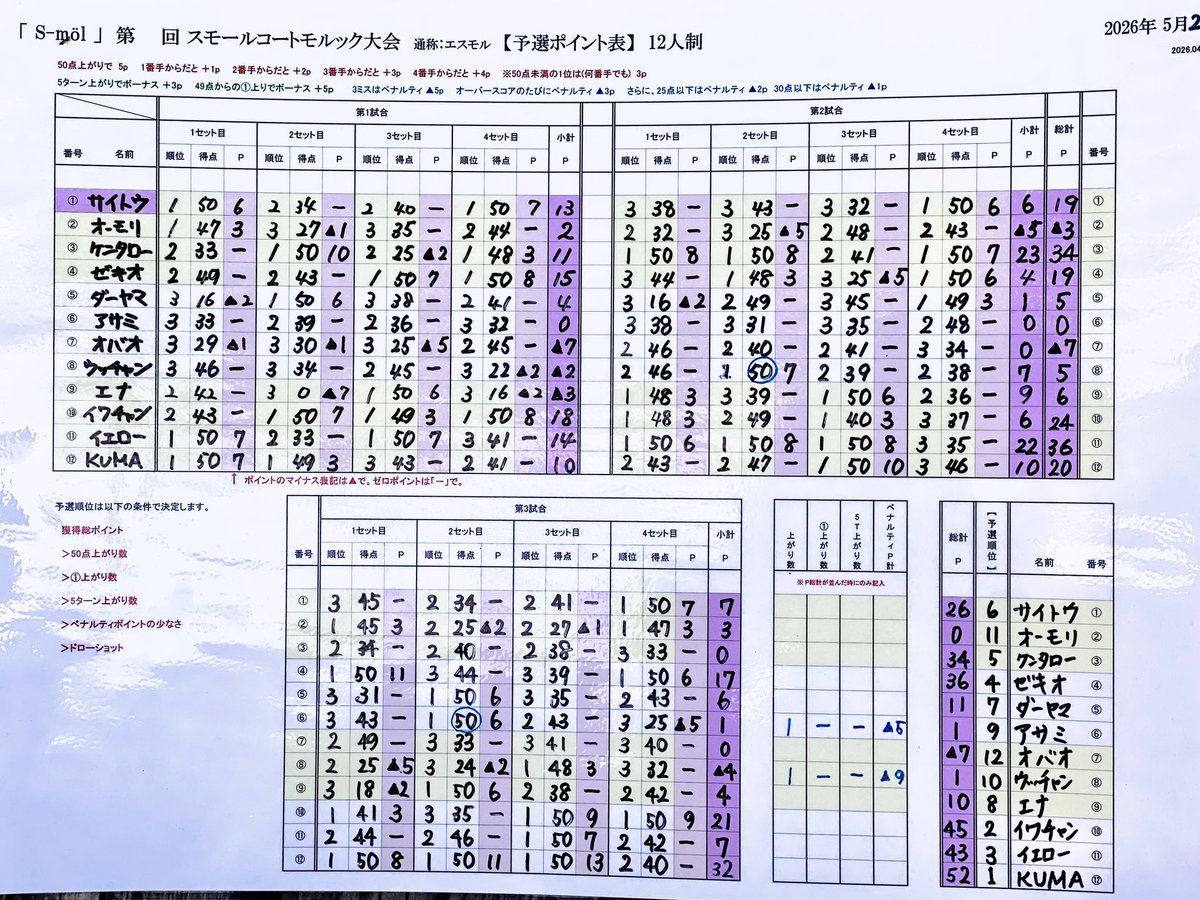 「 S-möl 」 第 回 スモールコートモルック大会 通称:エスモル 【予選ポイント表】 12人制
2026年 5月2
2026.04
50点上がりで 5p 1番手からだと +1p 2番手からだと +2p 3番手からだと +3p 4番手からだと +4p ※50点未満の1位は(何番手でも) 3p
5ターン上がりでボーナス +3p 49点からの①上りでボーナス +5p 3ミスはペナルティ ▲5p オーバースコアのたびにペナルティ ▲3p さらに、25点以下はペナルティ ▲2p 30点以下はペナルティ ▲1p
第1試合 第2試合
1セット目 2セット目 3セット目 4セット目 小計 1セット目 2セット目 3セット目 4セット目 小計 総計
番号 名前 順位 得点 P 順位 得点 P 順位 得点 P 順位 得点 P P 順位 得点 P 順位 得点 P 順位 得点 P 順位 得点 P P P 番号
① サイトウ 1 50 6 2 34 − 2 40 − 1 50 7 13 3 38 − 3 43 − 3 32 − 1 50 6 6 19 ①
② オーモリ 1 47 3 3 27 ▲1 3 35 − 2 44 − 2 2 32 − 3 25 ▲5 2 48 − 2 43 − ▲5 ▲3 ②
③ ケンタロー 2 33 − 1 50 10 2 25 ▲2 1 48 3 11 1 50 8 1 50 8 2 41 − 1 50 7 23 34 ③
④ ゼキオ 2 49 − 2 43 − 1 50 7 1 50 8 15 3 44 − 1 48 3 3 25 ▲5 1 50 6 4 19 ④
⑤ ダーヤマ 3 16 ▲2 1 50 6 3 38 − 2 41 − 4 3 16 ▲2 2 49 − 3 45 − 1 49 3 1 5 ⑤
⑥ アサミ 3 33 − 2 39 − 2 36 − 3 32 − 0 3 38 − 3 31 − 3 35 − 2 48 − 0 0 ⑥
⑦ オバオ 3 29 ▲1 3 30 ▲1 3 25 ▲5 2 45 − ▲7 2 46 − 2 40 − 2 41 − 3 34 − 0 ▲7 ⑦
⑧ ウッチャン 3 46 − 3 34 − 2 45 − 3 22 ▲2 ▲2 2 46 − 1 50 7 2 39 − 2 38 − 7 5 ⑧
⑨ エナ 2 42 − 3 0 ▲7 1 50 6 3 16 ▲2 ▲3 1 48 3 3 39 − 1 50 6 2 36 − 9 6 ⑨
⑩ イワチャン 2 43 − 1 50 7 1 49 3 1 50 8 18 1 48 3 2 49 − 1 40 3 3 37 − 6 24 ⑩
⑪ イエロー 1 50 7 2 33 − 1 50 7 3 41 − 14 1 50 6 1 50 8 1 50 8 3 35 − 22 36 ⑪
⑫ KUMA 1 50 7 1 49 3 3 43 − 2 41 − 10 2 43 − 2 47 − 1 50 10 3 46 − 10 20 ⑫
↑ ポイントのマイナス表記は▲で。ゼロポイントは「−」で。
予選順位は以下の条件で決定します。
獲得総ポイント
>50点上がり数
>①上がり数
>5ターン上がり数
>ペナルティポイントの少なさ
>ドローショット
第3試合
1セット目 2セット目 3セット目 4セット目 小計
番号 順位 得点 P 順位 得点 P 順位 得点 P 順位 得点 P P
① 3 45 − 2 34 − 2 41 − 1 50 7 7
② 1 45 3 2 25 ▲2 2 27 ▲1 1 47 3 3
③ 2 34 − 2 40 − 2 38 − 3 33 − 0
④ 1 50 11 3 44 − 3 39 − 1 50 6 17
⑤ 3 31 − 1 50 6 3 35 − 2 43 − 6
⑥ 3 43 − 1 50 6 2 43 − 3 25 ▲5 1
⑦ 2 49 − 3 33 − 3 41 − 3 40 − 0
⑧ 2 25 ▲5 3 24 ▲2 1 48 3 3 32 − ▲4
⑨ 3 18 ▲2 1 50 6 2 38 − 2 42 − 4
⑩ 1 41 3 3 35 − 1 50 9 1 50 9 21
⑪ 2 44 − 2 46 − 1 50 7 2 42 − 7
⑫ 1 50 8 1 50 11 1 50 13 2 40 − 32
上がり数 ①上がり数 5T上がり数 ペナルティP計
※ P総計が並んだ時にのみ記入
1 − − ▲5
1 − − ▲9
総計 P 【予選順位】 名前 番号
26 6 サイトウ ①
0 11 オーモリ ②
34 5 ケンタロー ③
36 4 ゼキオ ④
11 7 ダーヤマ ⑤
1 9 アサミ ⑥
▲7 12 オバオ ⑦
1 10 ウッチャン ⑧
10 8 エナ ⑨
45 2 イワチャン ⑩
43 3 イエロー ⑪
52 1 KUMA ⑫